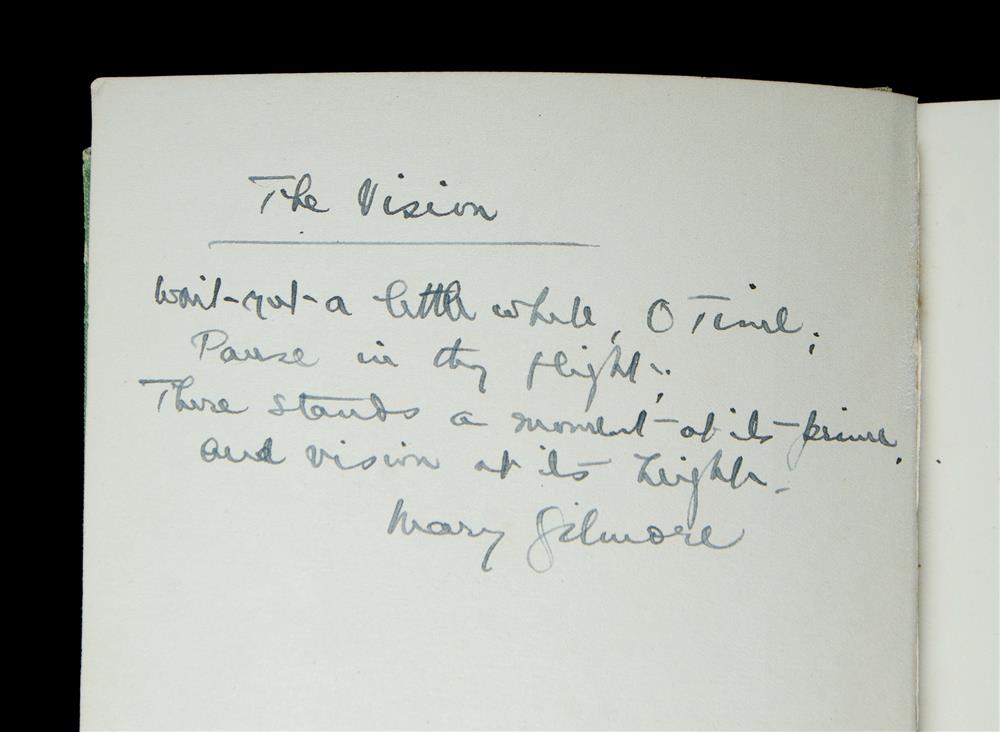 The Vision
Wait yet a little while, O Time;
Pause in thy flight;
There stands a moment at its prime,
And vision at its height.
Mary Gilmore